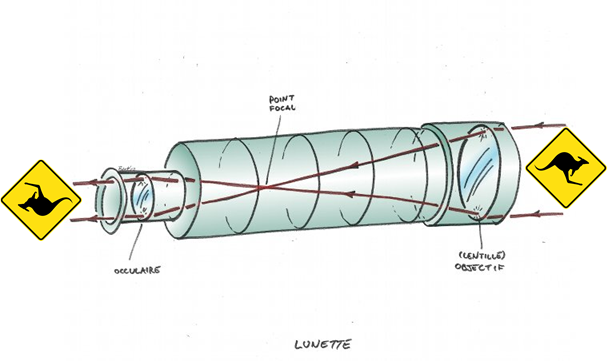 POINT
FOCAL
OCCULAIRE
(LENTILLE)
OBJECTIF
LUNETTE